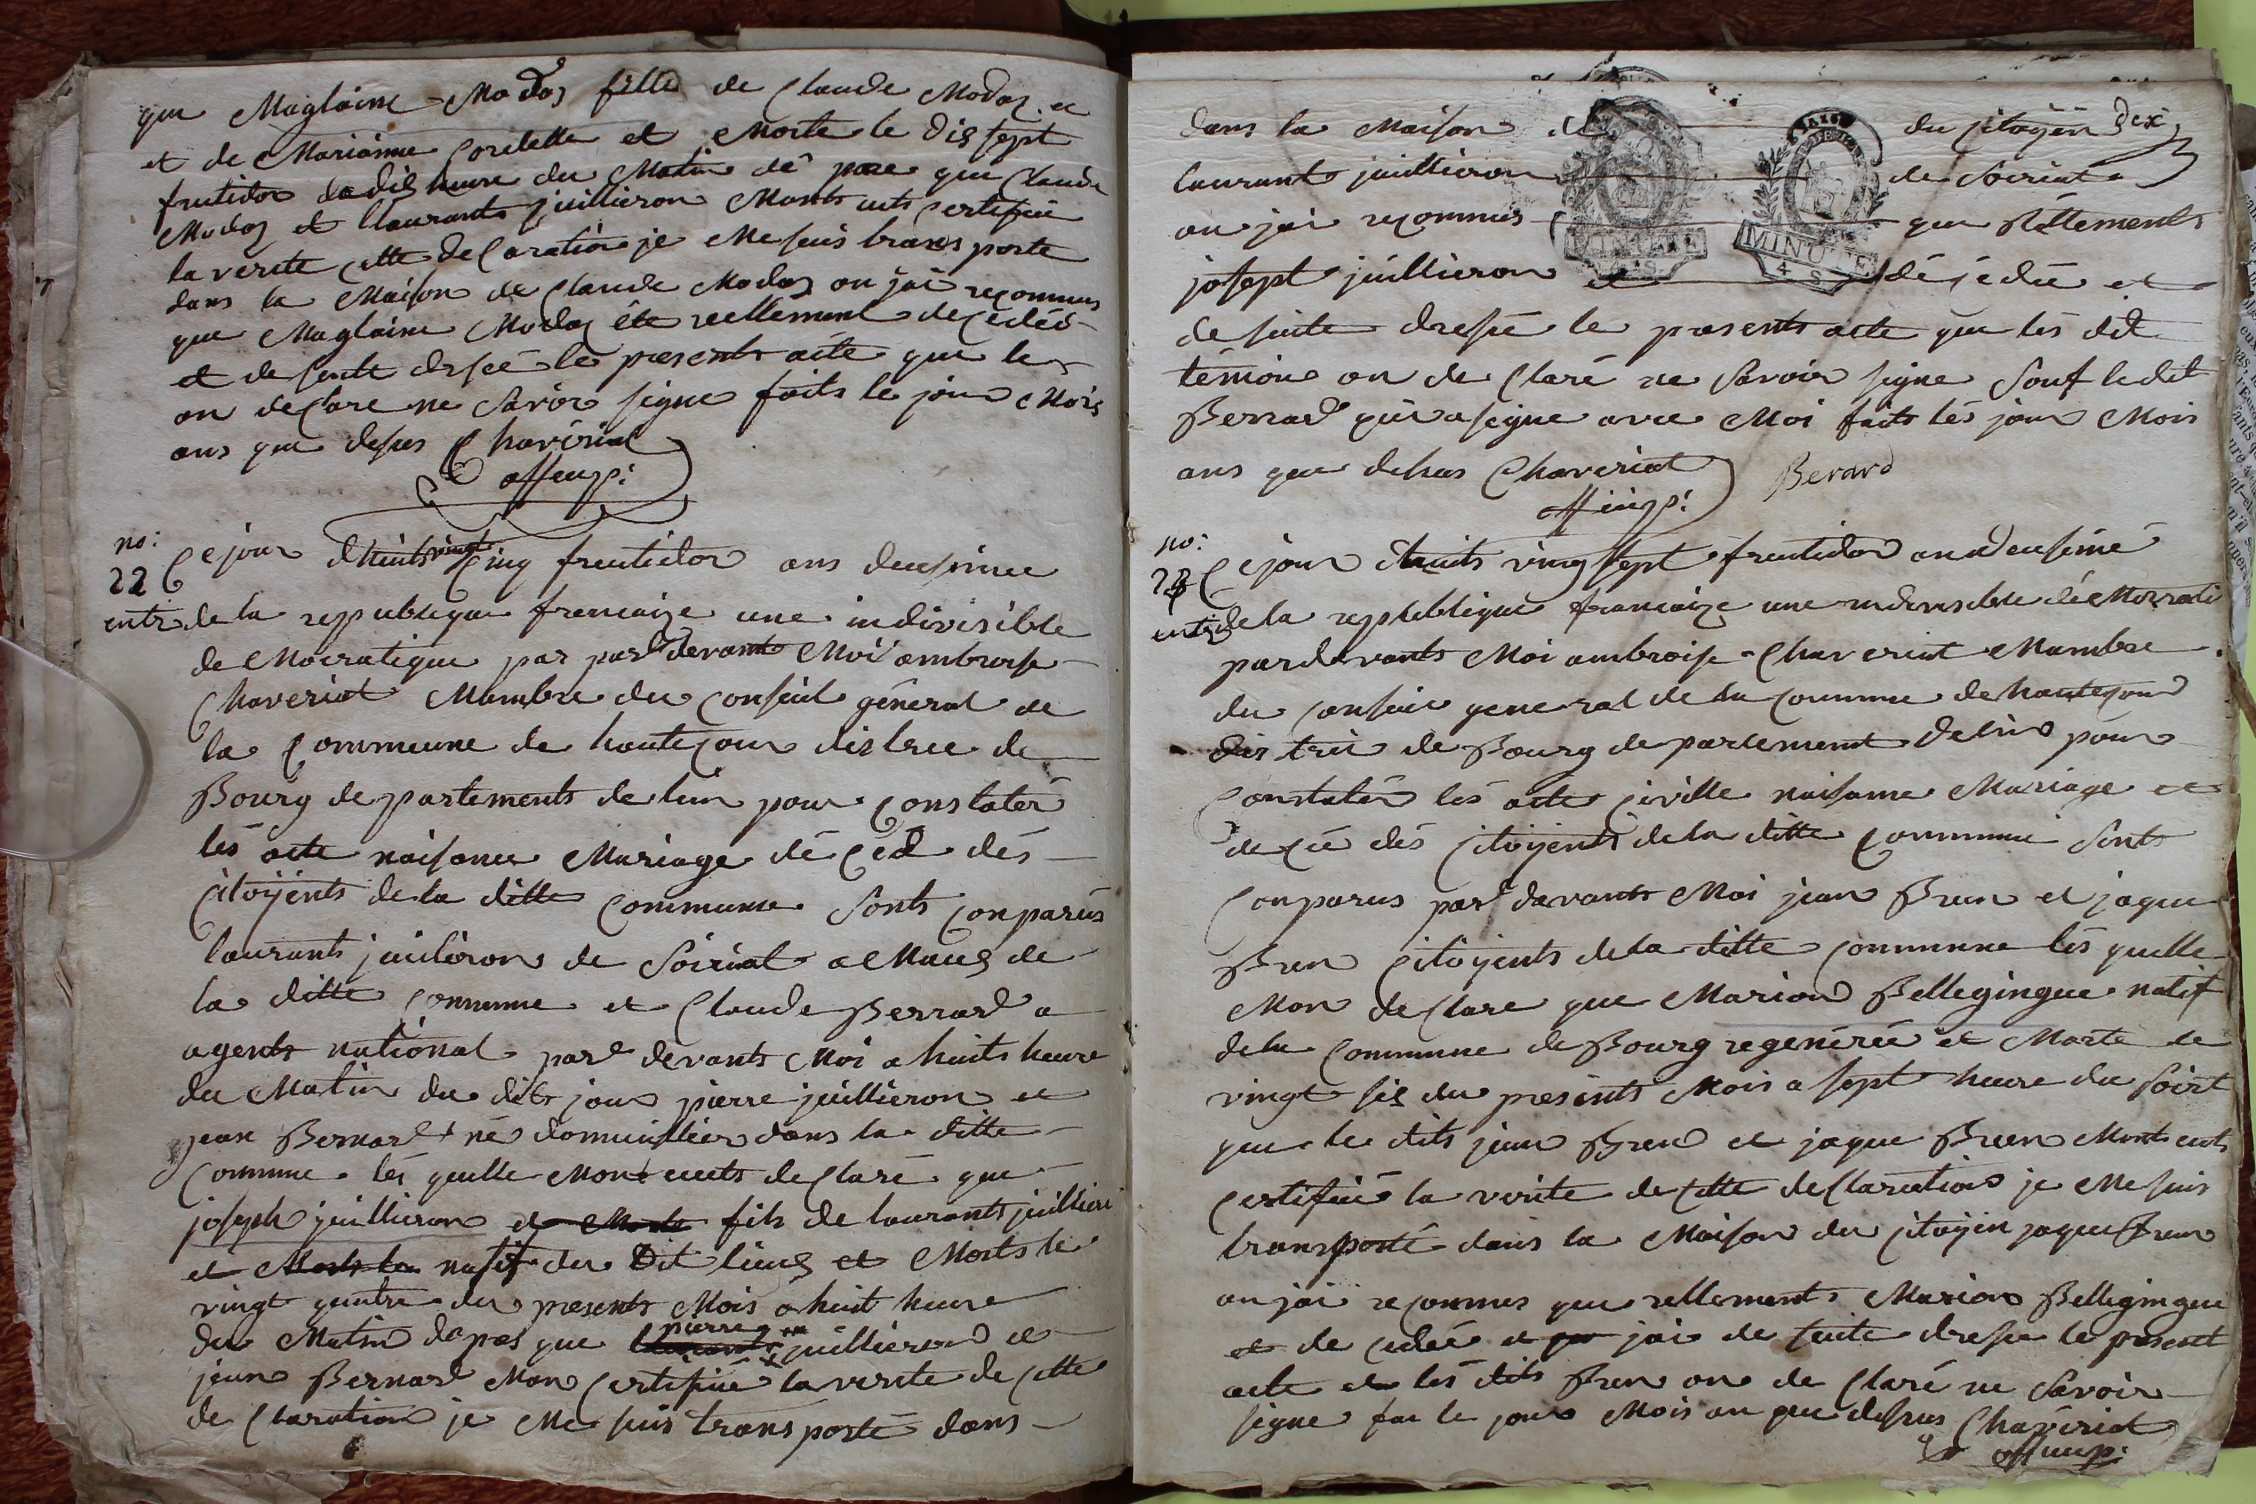 que Maglaine Modas fille de Claude Modas et
et de Marianne Cordelle et Morte le dis sept
frutidor da dis heure du Matin dé pare que Claude
Modas et Llaurants juillieron Monts euts Certifiée
la verite cette declaration je Me suis trans porte
dans la Maison de Claude Modas ou jai reconnus
que Maglaine Modas éte reellement decedéé
et de suite drsée le presents acte que le
on declare ne Savoir signe faits le jour Mois
ans que desus Chavériat
offeurp:
no:
22
Ce jour dhuits vingt Cinq freutidor ans deusimee
entz de la republeque francaize une indivisible
de Mocratique par pard devants Moi ambroise
Chaveriat Mambre du Conseil géneral de
la Commeune de hautecour distree de
Bourg departements de lein pour Constatér
lés acte naisance Mariage dé Ced dés
Citoÿents de la ditte Commune Sonts Conparûs
laurants juilieron de Soiriat a Maus de
la ditte Commune et Claude Berrard a
agents national pard devants Moi a huits heure
du Matin du dits jour pierre juillieron et
jean Bernard né domicillier dans la ditte
Commune lés quelle Mont euts declaré que
joseph juillieron et Morte fils de laurants juillieri
et Morts le natif du Dit lieus et Morts le
vingt quatre du presents Mois a huit heure
du Matin dapres que laurants pierre juillierond et
jean Bernard Mon Certifiée la verite de Cette
de Claration je Me suis transporté dans
dans la Maison du Citoÿen dix
laurants juillieron de Soiriat
ou jai reconnus que Réttements
joSept juillieron et déjédée et
MINUTE
4 S
MINUTE
4 S
de suite dresée le presents acte que lés dit
témoin on de Claré ne Savoir signe Souf le dit
Berrard quis a signe avec Moi faits lés jour Mois
ans que desus Chaveriat Berard
offieurp:
no:
23
Ce jour dhuits vingt sept freutidor an deusimé
entz de la repleblique francaize une indivisible déMocrati
pardevants Moi ambroise Chaveriat Mambre
du Conseil general de la Commune de hautecour
distric de Bourg departement delin pour
Constatér lés acte Civille naisance Mariage et
decée dés Citoÿents de la ditte Commune Sonts
Conparus pard devants Moi jean Bren et jaque
Bren Citoÿents de la ditte Commune lés quelle
Mon de Clare que Mariond Bellegingue natif
de la Commune de Bourg regenérée et Morte le
vingt sis du presents Mois a sept heure du Soirt
que le dits jean Bren et jaque Bren Monts euts
Certifiée la verite de Cette declaration je Me suis
transporté dans la Maison du Citoÿen jaque Bren
ou jai reconnus que rellements Marion Bellegingue
et de cedée et jai de suite dresée le present
acte et lés dits Bren on de Claré ne Savoir
signe fai le jour Mois an que desus Chavériat
offieurp: